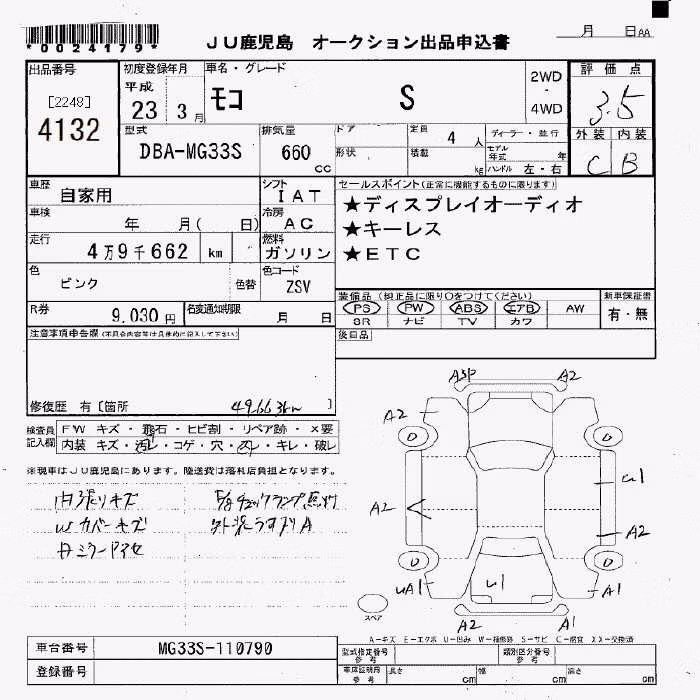 *0024179*
JU鹿児島 オークション出品申込書
月 日AA
出品番号
[2248]
4132
初度登録年月
平成
23 3月
車名・グレード
モコ S
2WD
・
4WD
評価点
3.5
外装 内装
C B
型式
DBA-MG33S
排気量
660
cc
ドア
形状
定員 4 人
積載 kg
ディーラー・並行
モデル年式 年
ハンドル 左・右
車歴
自家用
シフト
IAT
車検
年 月( 日)
冷房
AC
走行
4万9千662 km
燃料
ガソリン
色
ピンク
色替
色コード
ZSV
R券
9,030 円
名変通知期限
月 日
セールスポイント(正常に機能するものに限ります)
★ディスプレイオーディオ
★キーレス
★ETC
装備品(純正品に限り○をつけてください)
PS PW ABS エアB AW
SR ナビ TV カワ
新車保証書
有・無
後日品
注意事項申告欄(不具合内容等は具体的に記入して下さい)
修復歴 有〔箇所 〕
49663km
検査員
記入欄
FW キズ・飛石・ヒビ割・リペア跡・×要
内装 キズ・汚レ・コゲ・穴・スレ・キレ・破レ
※現車はJU鹿児島にあります。陸送費は落札店負担となります。
内張りキズ
Wカバーキズ
チェックランプ点灯
A3P A2
A2
A2
A2
UA1 U1 A1
A2 A1
スペア
A-キズ E-エクボ U-凹み W-補修跡 S-サビ C-腐食 XX-交換済
車台番号
MG33S-110790
登録番号
型式指定番号
参考
類別区分番号
参考
車庫証明用
参考
長さ cm
幅 cm
高さ cm